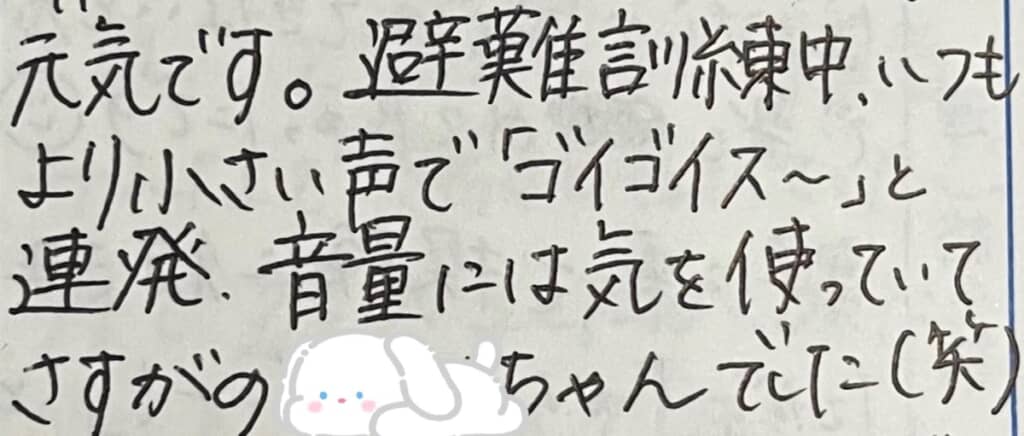 元気です。避難訓練中、いつも
より小さい声で「ゴイゴイス～」と
連発、音量には気を使っていて
さすがの ちゃんでした(笑)